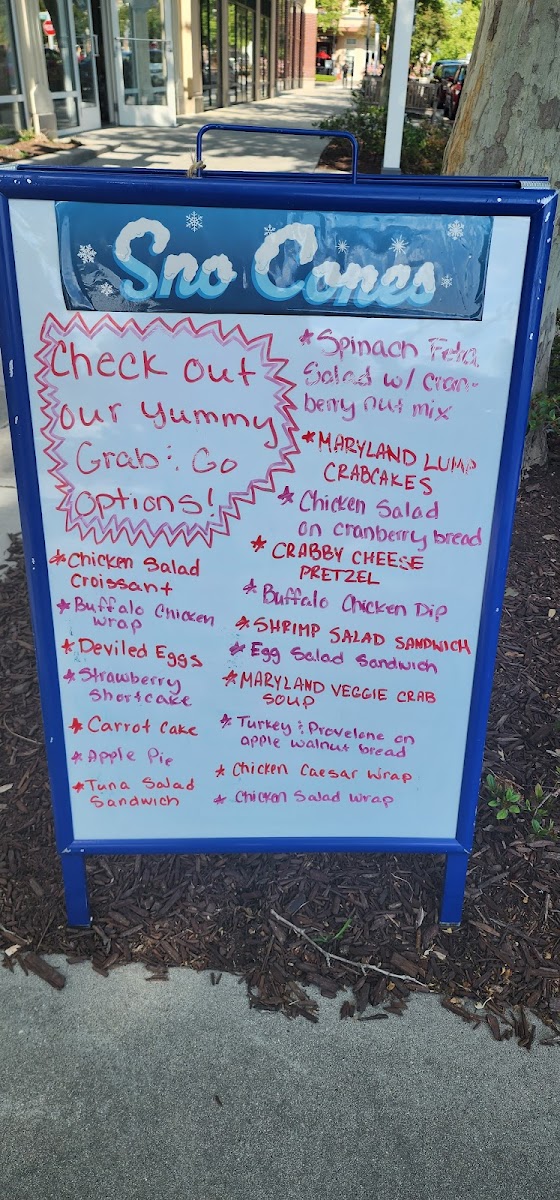 Sno Cones
Check out
our yummy
Grab & Go
options!
*Chicken Salad
Croissant
*Buffalo Chicken
wrap
*Deviled Eggs
*Strawberry
Shortcake
*Carrot Cake
*Apple Pie
*Tuna Salad
Sandwich
*Spinach Feta
Salad w/ cran-
berry nut mix
*MARYLAND LUMP
CRABCAKES
*Chicken Salad
on cranberry bread
*CRABBY CHEESE
PRETZEL
*Buffalo Chicken Dip
*SHRIMP SALAD SANDWICH
*Egg Salad Sandwich
*MARYLAND VEGGIE CRAB
SOUP
*Turkey & Provelone on
apple walnut bread
*Chicken Caesar Wrap
*Chicken Salad Wrap